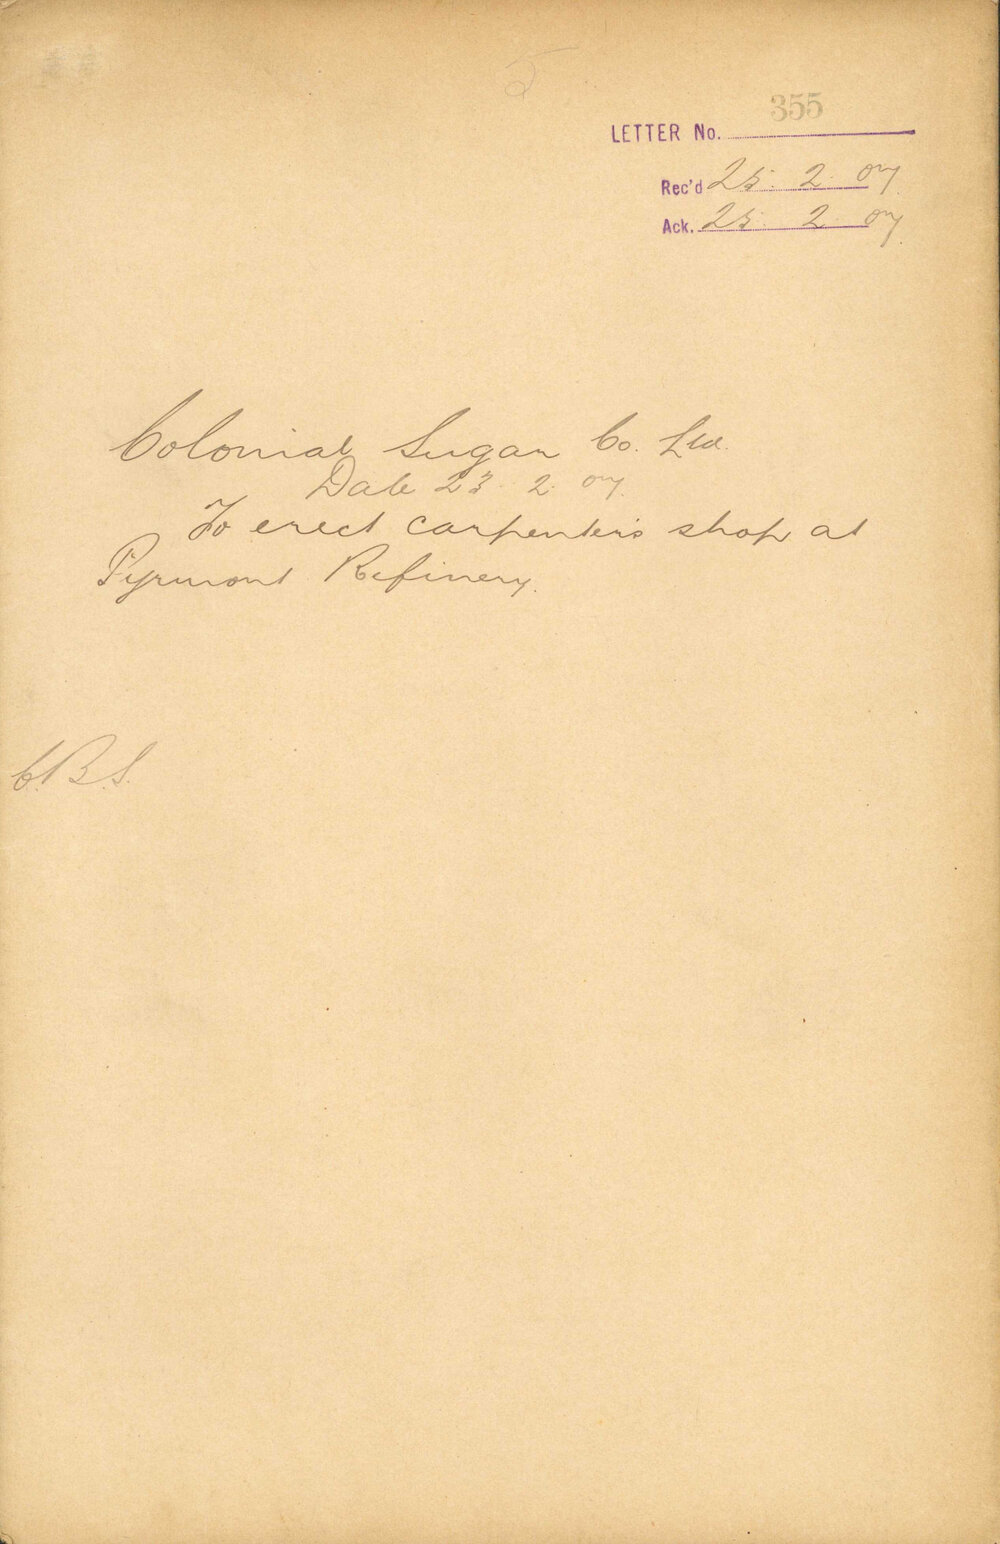 5
355
LETTER No.
Rec'd 25. 2. 07.
Ack. 25. 2. 07.
Colonial Sugar Co. Ltd.
Date 23. 2. 07.
To erect carpenter's shop at
Pyrmont Refinery.
C.B.S.